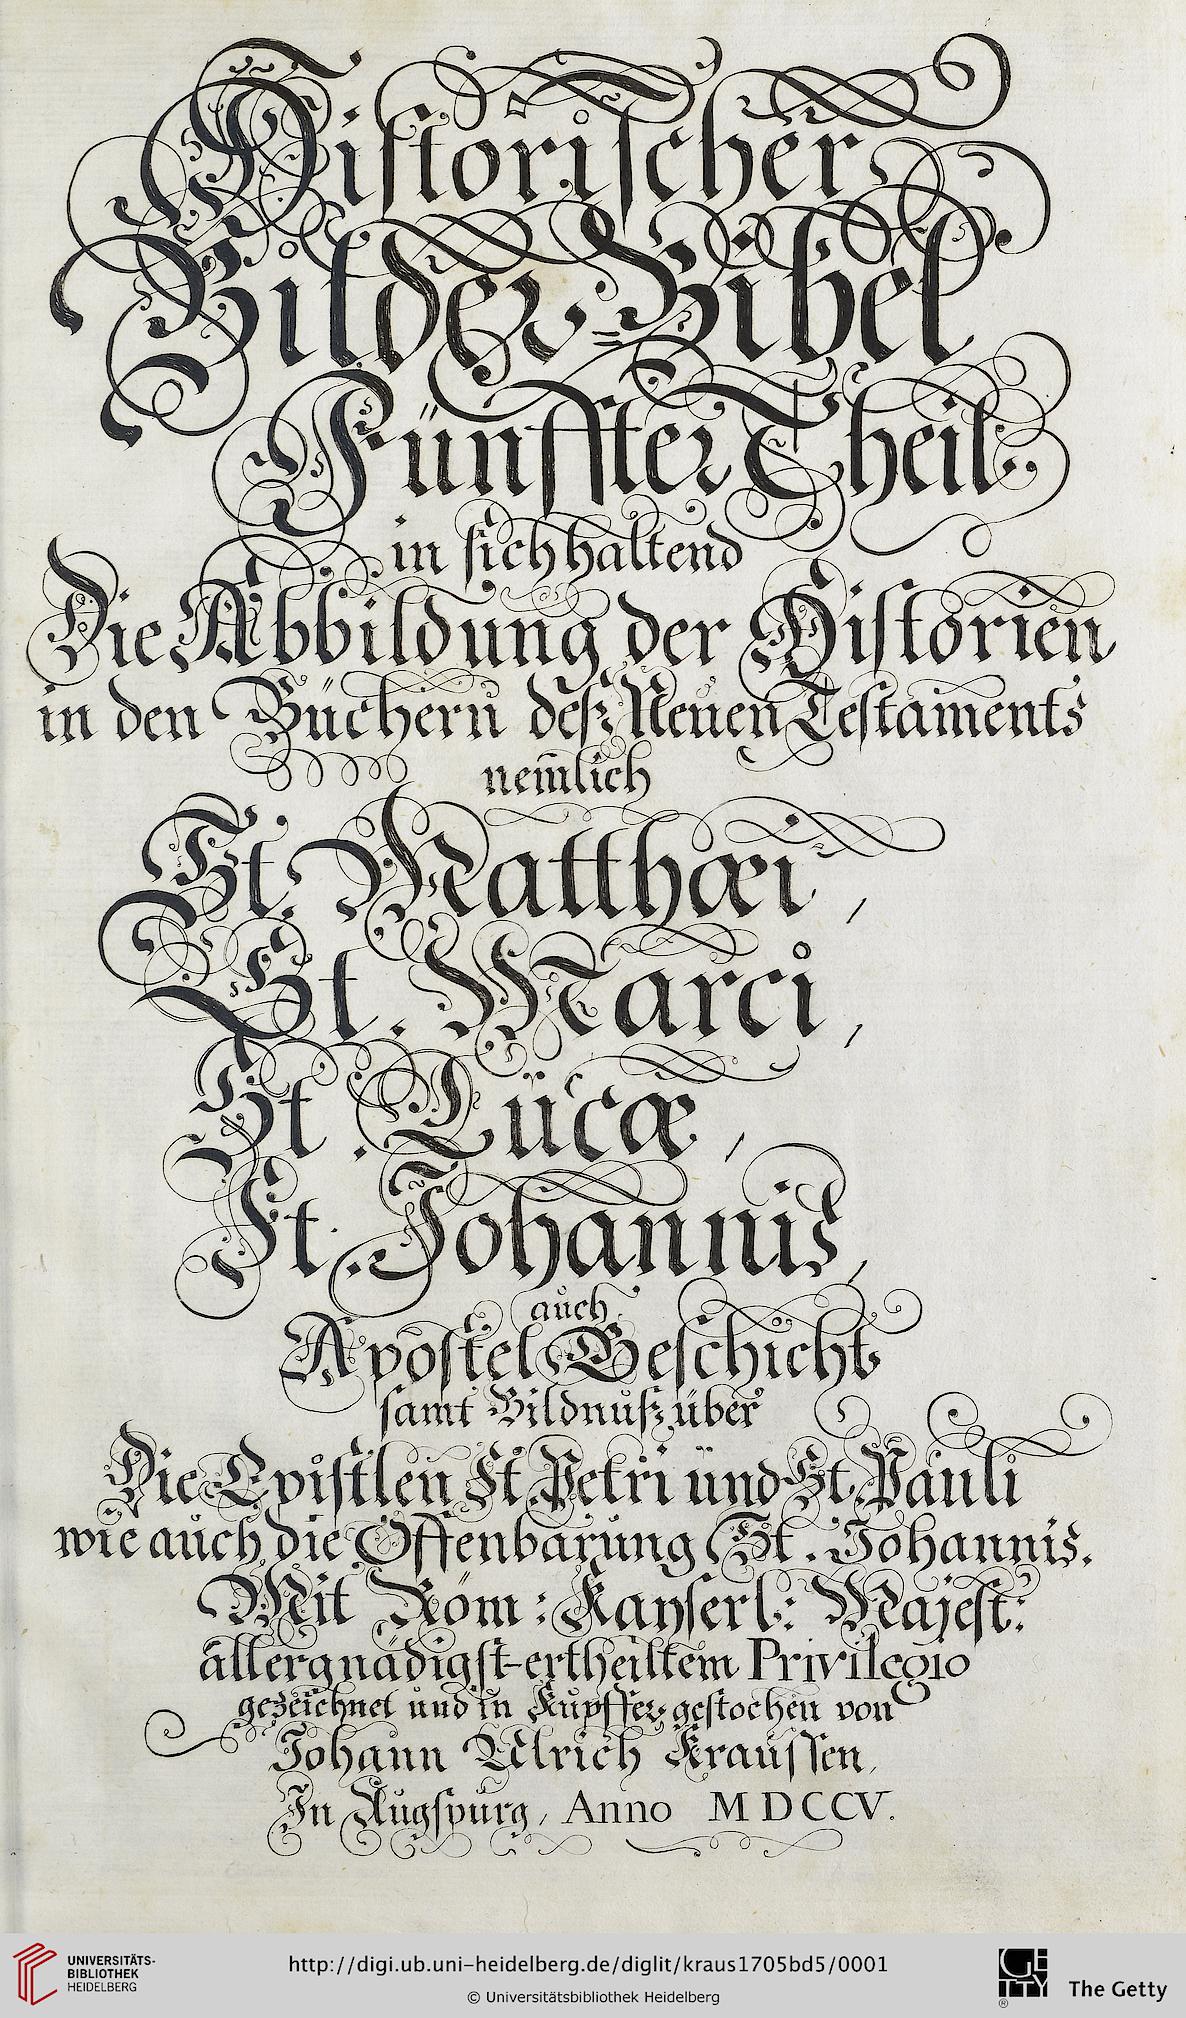 Historischer
Bilder-Bibel
Fünffter Theil.
in sich haltend
Die Abbildung der Historien
in den Büchern deß Neuen Testaments
nem̄lich
St. Matthæi,
St. Marci,
St. Lucæ,
St. Johannis,
auch
Apostel Geschicht
samt Bildnuß über
Die Epistlen St. Petri und St. Pauli
wie auch die Offenbarung St. Johannis.
Mit Röm: Kayserl: Majest:
allergnädigst-ertheiltem Privilegio
gezeichnet und in Kupffer gestochen von
Johann Ulrich Kraussen,
In Augspurg, Anno MDCCV.
UNIVERSITÄTS-
BIBLIOTHEK
HEIDELBERG
http://digi.ub.uni-heidelberg.de/diglit/kraus1705bd5/0001
© Universitätsbibliothek Heidelberg
GETTY
®
The Getty